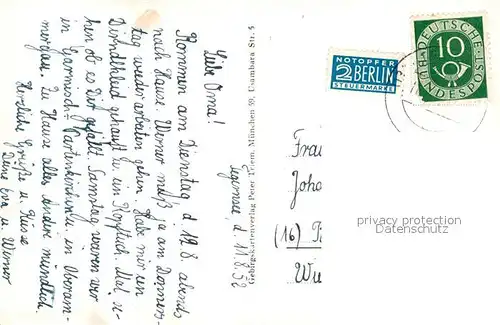 Tegernsee d. 11.8.52
Liebe Oma!
Kommen am Dienstag d. 12.8. abends
nach Hause. Werner muß ja am Donners-
tag wieder arbeiten gehen. Habe mir ein
Dirndlkleid gekauft u. ein Kopftuch. Mal se-
hen ob es Dir gefällt. Samstag waren wir
in Garmisch-Partenkirchen u. in Oberam-
mergau. Zu Hause alles andere mündlich.
Herzliche Grüße u. Küsse
Deine u. Werner
Gebirgskartenverlag Peter Triem, München 59, Usambara Str. 5
NOTOPFER
2 BERLIN
STEUERMARKE
DEUTSCHE
BUNDESPOST
10
Frau
Joha
(16)
Wu
privacy protection
Datenschutz